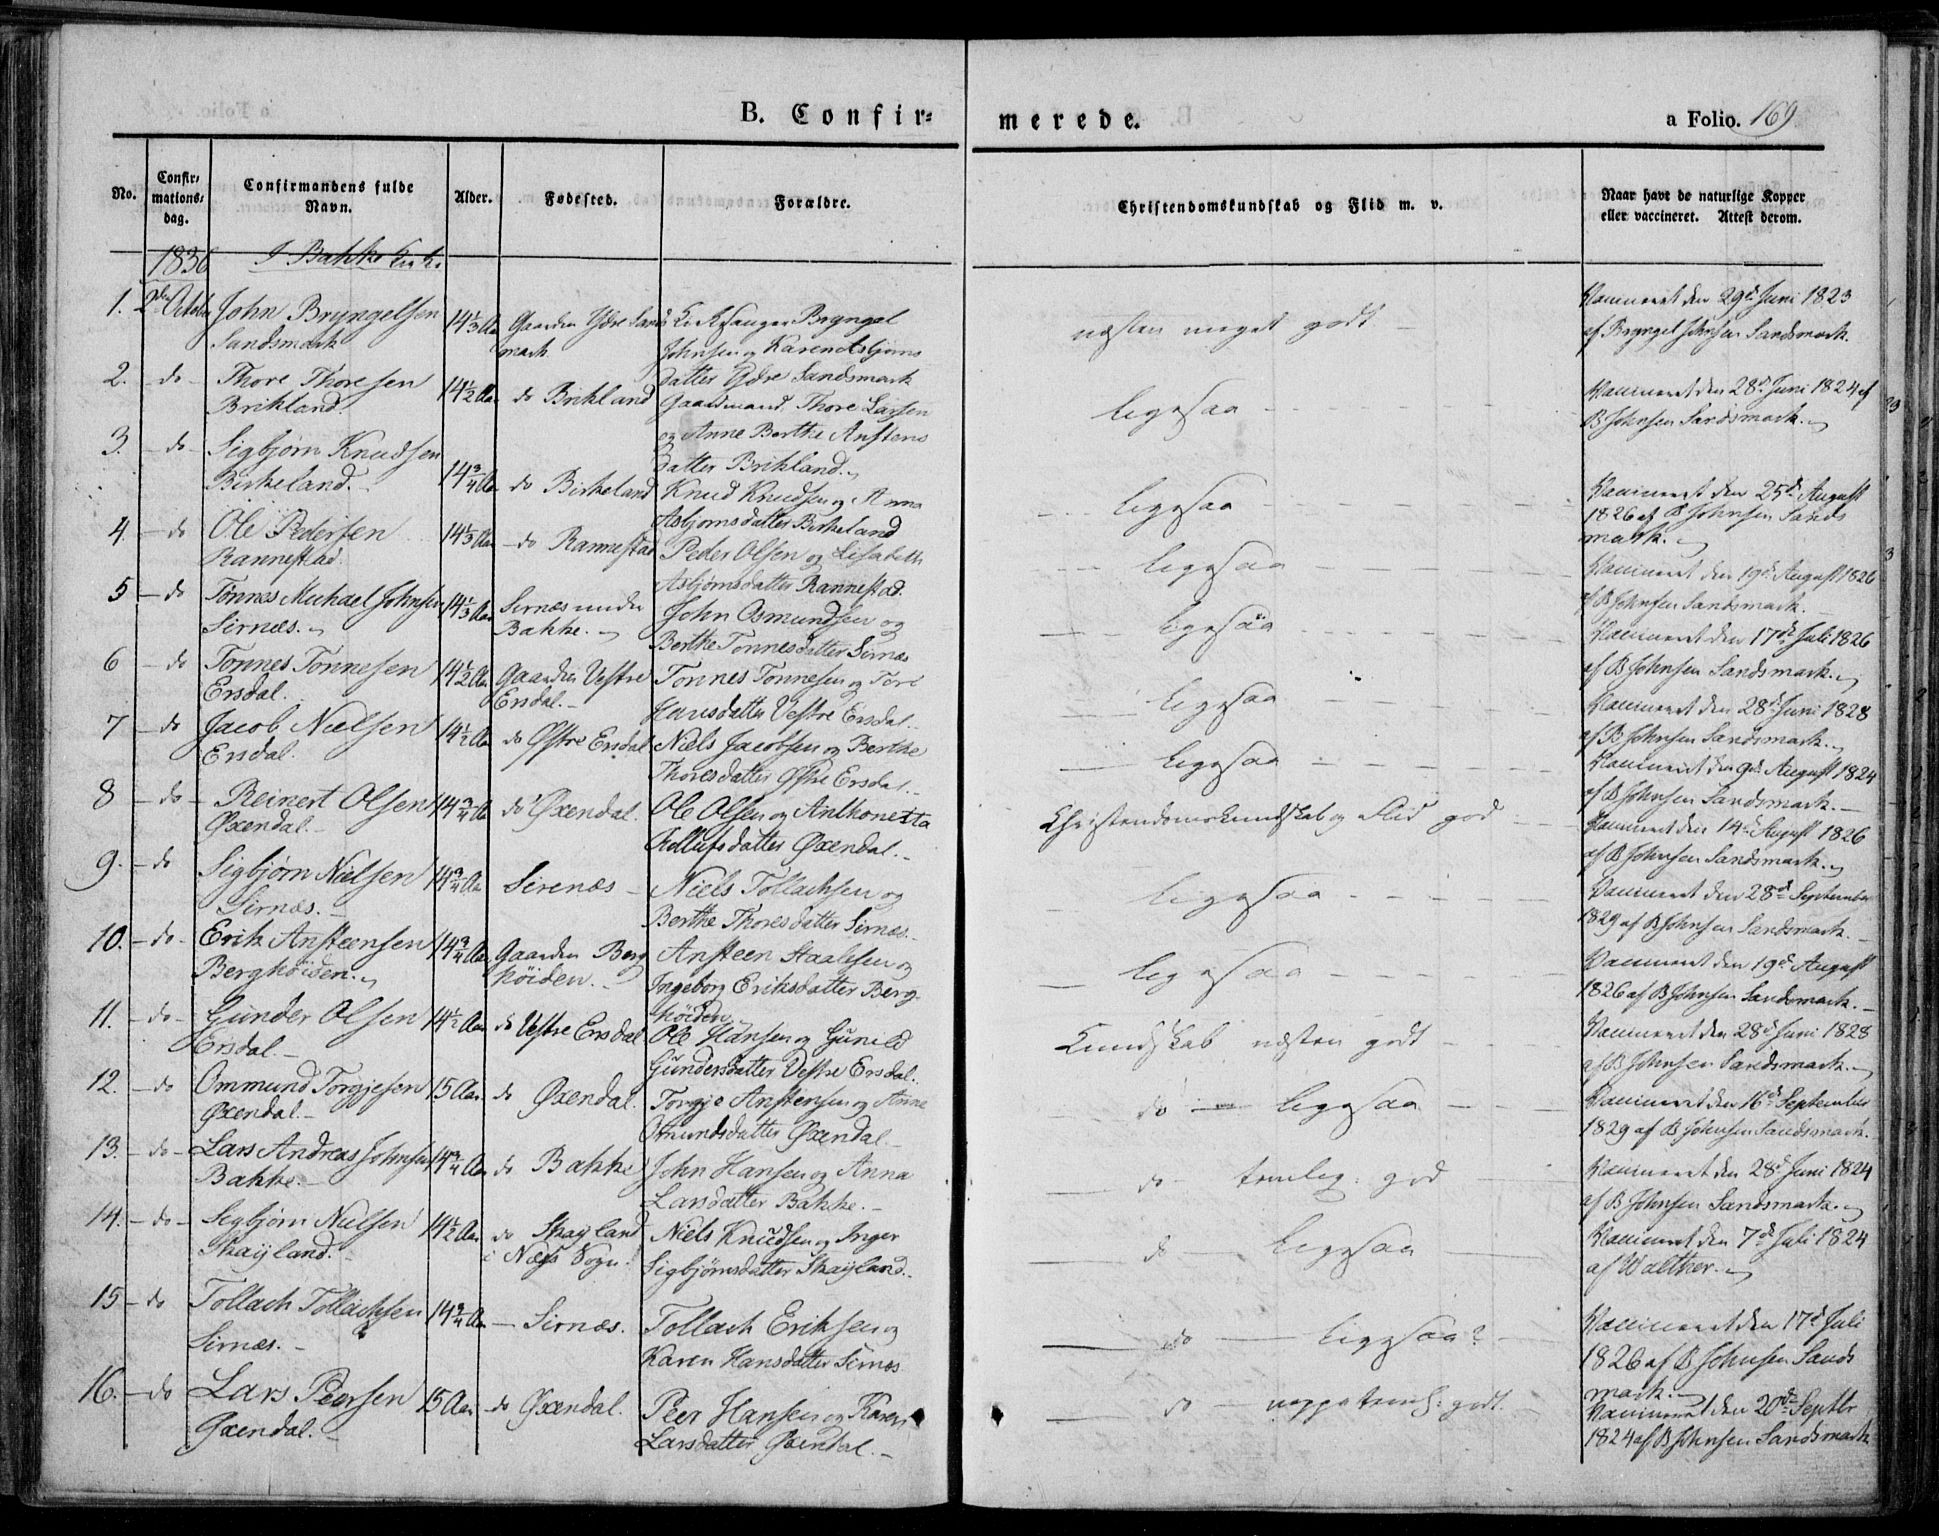 B. Confir=
merede.
a Folio. 169
No.
Confir=
mations=
dag.
Confirmandens fulde
Navn.
Alder.
Fødested.
Forældre.
Christendomskundskab og Flid m. v.
Naar havt de naturlige Kopper
eller vaccineret. Attest derom.
1836 I Bakke Kirke
1. 2den Octobr John Bryngelsen
Sandsmark
14 1/3 Aar
Gaarden Ydre Sands
mark
Kirkesanger Bryngel
Johnsen og Karen Asbjørns
datter Ydre Sandsmark
næsten meget godt
Vaccineret den 29de Juni 1823
af Bryngel Johnsen Sandsmark.
2. do Thore Thoresen
Brikland.
14 1/2 Aar
do Brikland
Gaardmand Thore Larsen
og Anne Berthe Anstens
datter Brikland.
ligesaa
Vaccineret den 28de Juni 1824 af
B Johnsen Sandsmark.
3. do Sigbjørn Knudsen
Birkeland.
14 3/4 Aar
do Birkeland
Knud Knudsen og Anna
Asbjørnsdatter Birkeland
ligesaa
Vaccineret den 25de August
1826 af B Johnsen Sands
mark.
4. do Ole Pedersen
Rannestad.
14 1/3 Aar
do Rannestad
Peder Olsen og Lisabeth
Asbjørnsdatter Rannestad.
ligesaa
Vaccineret den 19de August 1826
af B Johnsen Sandsmark.
5 do Tønnes Michael Johnsen
Sirnæs.
14 1/3 Aar
Sirnæs under
Bakke.
John Osmundsen og
Berthe Tønnesdatter Sirnæs
ligesaa
Vaccineret den 17de Juli 1826
af B Johnsen Sandsmark.
6 do Tønnes Tønnesen
Ersdal.
14 1/2 Aar
Gaarden Vestre
Ersdal.
Tønnes Tønnesen og Tori
Hansdatter Vestre Ersdal.
ligesaa
Vaccineret den 28de Juni 1828
af B Johnsen Sandsmark.
7 do Jacob Nielsen
Ersdal.
14 1/2 Aar
do Østre Ersdal
Niels Jacobsen og Berthe
Thoresdatter Østre Ersdal.
ligesaa
Vaccineret den 9de August 1824
af B Johnsen Sandsmark.
8 do Reinert Olsen
Øxendal.
14 3/4 Aar
do Øxendal.
Ole Olsen og Anthonetta
Rollufsdatter Øxendal.
Christendomskundskab og Flid god
Vaccineret den 14de August 1826
af B Johnsen Sandsmark.
9. do Sigbjørn Nielsen
Sirnæs.
14 3/4 Aar
Sirenæs
Niels Tollachsen og
Berthe Thoresdatter Sirnæs.
ligesaa
Vaccineret den 28de September
1829 af B Johnsen Sandsmark.
10. do Erik Ansteensen
Berghøiden.
14 3/4 Aar
Gaarden Berg
høiden.
Ansteen Staalesen og
Ingeborg Eriksdatter Berg-
høiden
ligesaa
Vaccineret den 19de August
1826 af B Johnsen Sandsmark.
11. do Gunder Olsen
Ersdal.
14 1/2 Aar
do Vestre Ersdal
Ole Hansen og Gunild
Gundersdatter Vestre Ersdal.
Kundskab næsten godt
Vaccineret den 28de Juni 1828
af B Johnsen Sandsmark.
12. do Ommund Torgjesen
Øxendal.
15 Aar
do Øxendal.
Torgje Anstensen og Anne
Omundsdatter Øxendal
do ligesaa
Vaccineret den 16de September
1829 af B Johnsen Sandsmark.
13. do Lars Andreas Johnsen
Bakke.
14 3/4 Aar
do Bakke
John Hansen og Anna
Larsdatter Bakke.
do temlig god
Vaccineret den 28de Juni 1824
af B Johnsen Sandsmark.
14. do Sigbjørn Nielsen
Skaijland.
14 1/2 Aar
do Skaijland
i Næss Sogn
Niels Knudsen og Inger
Sigbjørnsdatter Skaijland.
do ligesaa
Vaccineret den 7de Juli 1824
af Walther.
15 do Tollach Tollachsen
Sirnæs.
14 3/4 Aar
Sirnæs.
Tollach Eriksen og
Karen Hansdatter Sirnæs
do ligesaa?
Vaccineret den 17de Juli
1826 af B Johnsen Sands
mark.
16. do Lars Peersen
Øxendal.
15 Aar
do Øxendal.
Peer Hansen og Karen
Larsdatter Øxendal.
do neppe teml: godt.
Vaccineret den 20de Septbr
1824 af B Johnsen Sandsmark